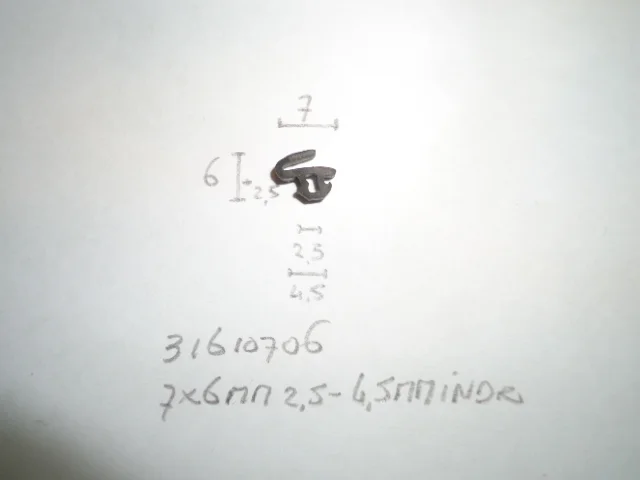 7
6
2,5
2,5
4,5
31610706
7x6MM 2,5-4,5MMINDR